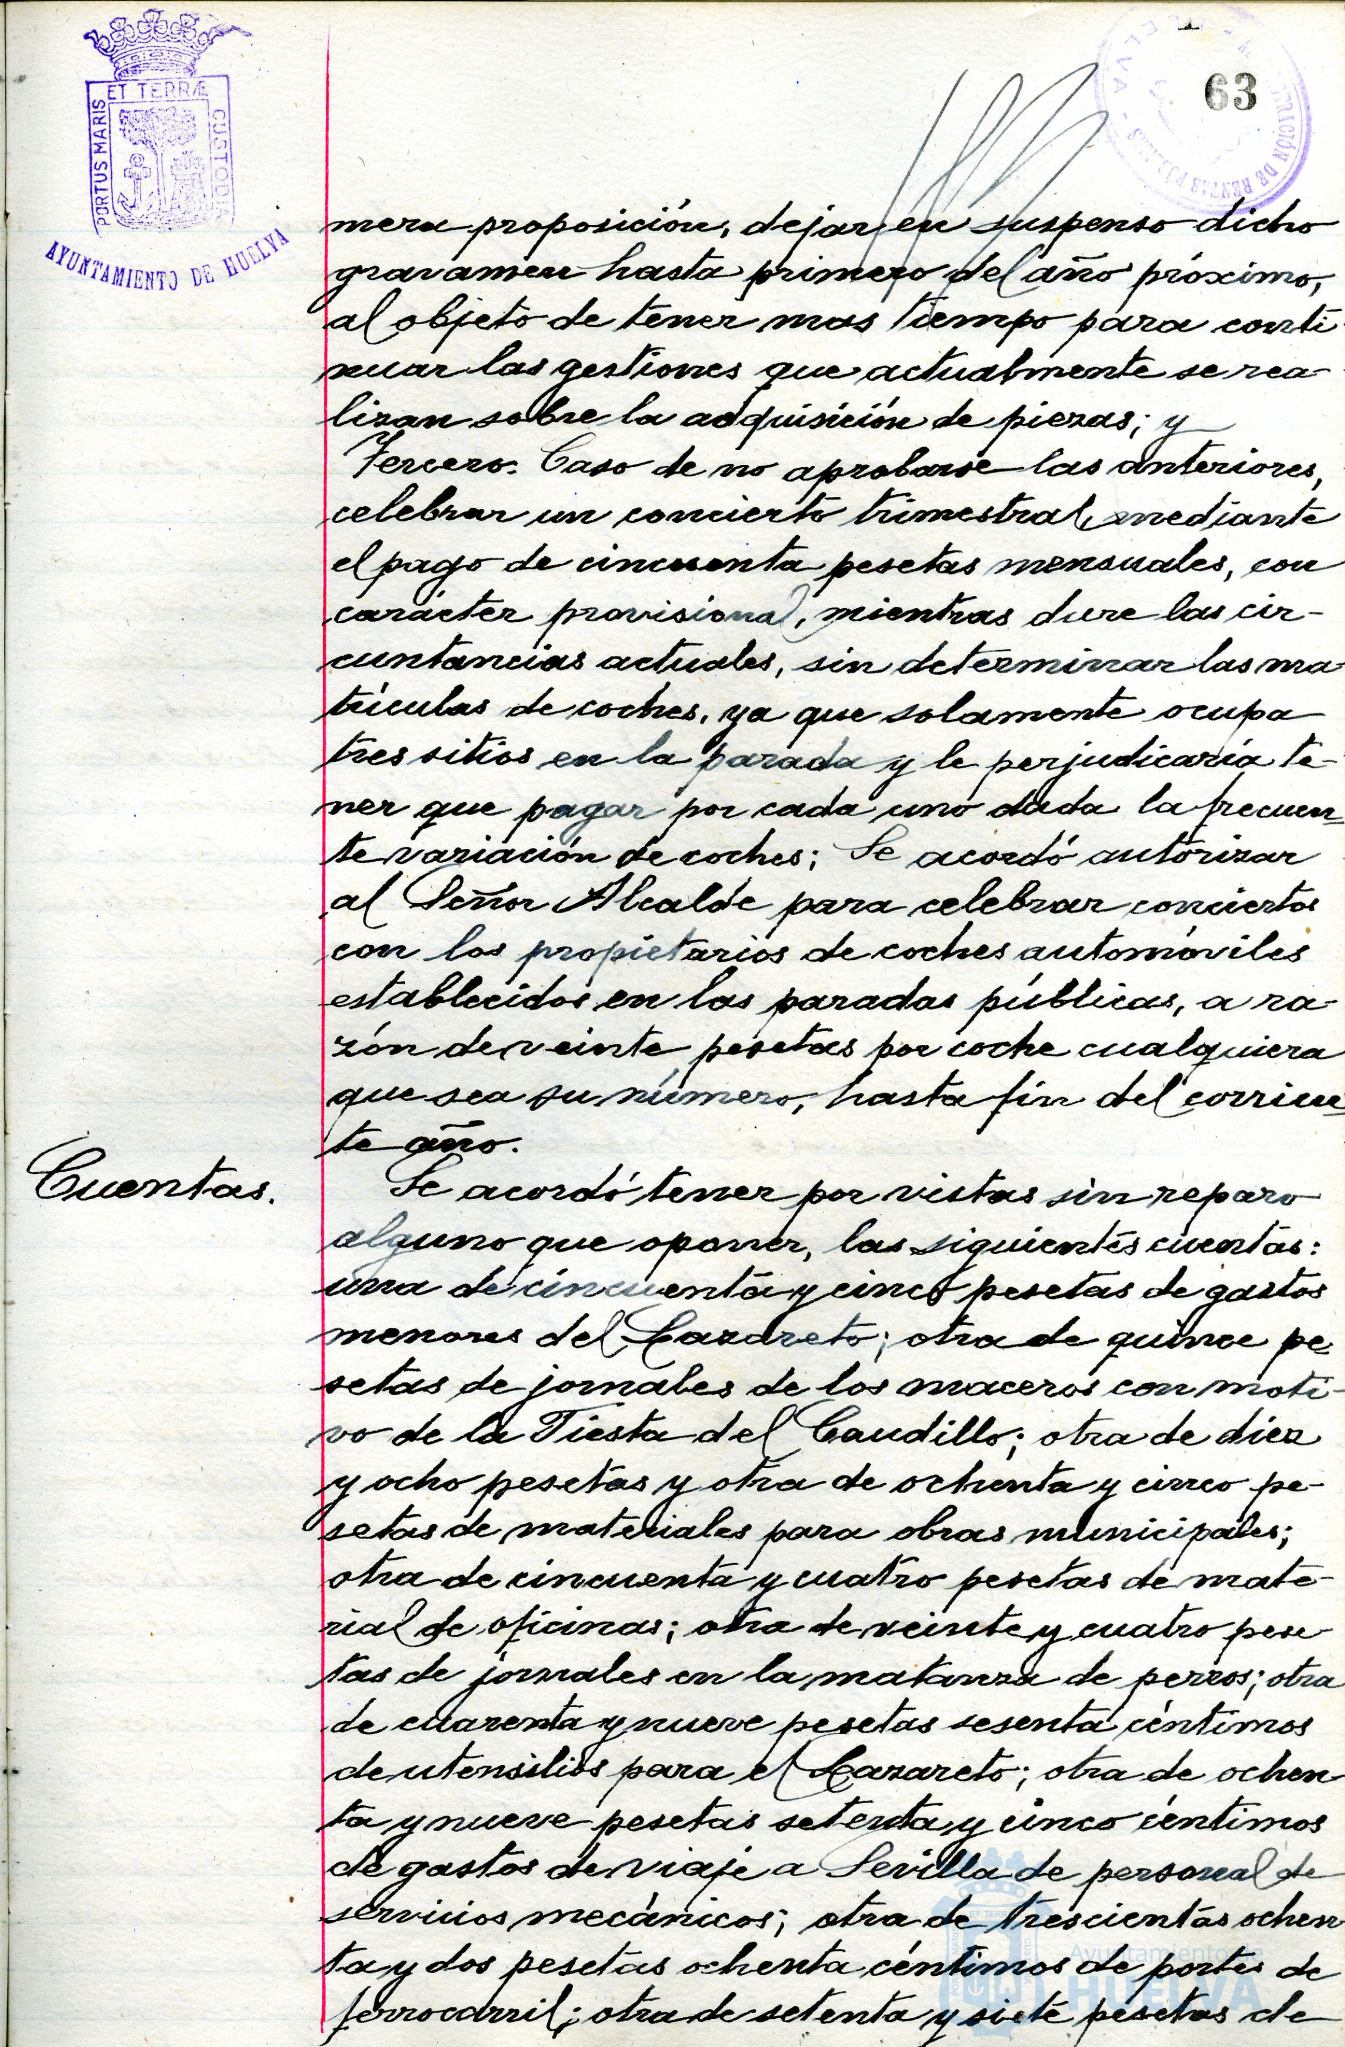 63
PORTUS MARIS ET TERRÆ CUSTODIA
AYUNTAMIENTO DE HUELVA
mera proposición, dejar en suspenso dicho
gravamen hasta primero del año próximo,
al objeto de tener mas tiempo para conti-
nuar las gestiones que actualmente se rea-
lizan sobre la adquisición de piezas; y
Tercero. Caso de no aprobarse las anteriores,
celebrar un concierto trimestral, mediante
el pago de cincuenta pesetas mensuales, con
carácter provisional, mientras dure las cir-
cuntancias actuales, sin determinar las ma-
trículas de coches, ya que solamente ocupa
tres sitios en la parada y le perjudicaría te-
ner que pagar por cada uno dada la frecuen-
te variación de coches; Se acordó autorizar
al Señor Alcalde para celebrar conciertos
con los propietarios de coches automóviles
establecidos en las paradas públicas, a ra-
zón de veinte pesetas por coche cualquiera
que sea su número, hasta fin del corrien-
te año.
Cuentas.
Se acordó tener por vistas sin reparo
alguno que oponer, las siguientes cuentas:
una de cincuenta y cinco pesetas de gastos
menores del Lazareto; otra de quince pe-
setas de jornales de los maceros con moti-
vo de la Fiesta del Caudillo; otra de diez
y ocho pesetas y otra de ochenta y cinco pe-
setas de materiales para obras municipales;
otra de cincuenta y cuatro pesetas de mate-
rial de oficinas; otra de veinte y cuatro pese-
tas de jornales en la matanza de perros; otra
de cuarenta y nueve pesetas sesenta céntimos
de utensilios para el Lazareto; otra de ochen-
ta y nueve pesetas setenta y cinco céntimos
de gastos de viaje a Sevilla de personal de
servicios mecánicos; otra de trescientas ochen-
ta y dos pesetas ochenta céntimos de portes de
ferrocarril; otra de setenta y siete pesetas de
Ayuntamiento de
HUELVA